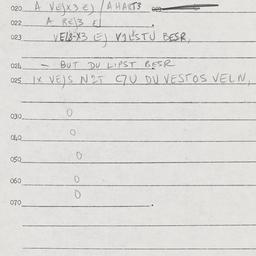 020 A VEJX3 EJ / A HART3
022 A RE/3 EJ .
023 VE/3-X3 EJ VILSTU BESR,
024 – BUT DU LIPST BESR
025 IX VEJS N2T C7U DU VESTOS VELN,
030 0
040 0
050 0
060 0
0
070 .